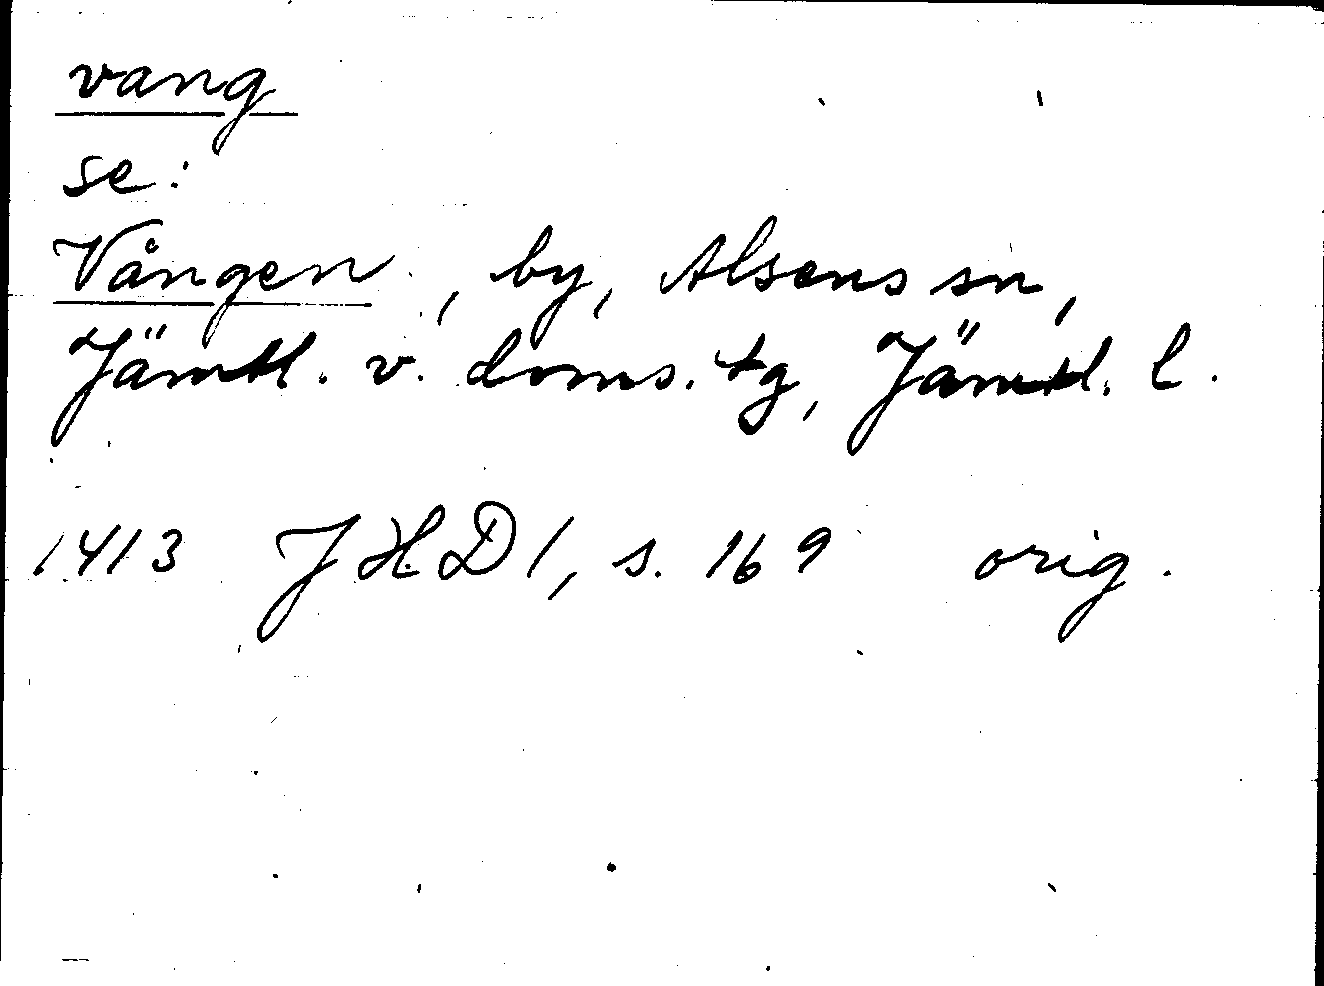 vang
se:
Vången, by, Alsens sn,
Jämtl. v. doms. tg, Jämtl. l.
1413 JHD 1, s. 169 orig.